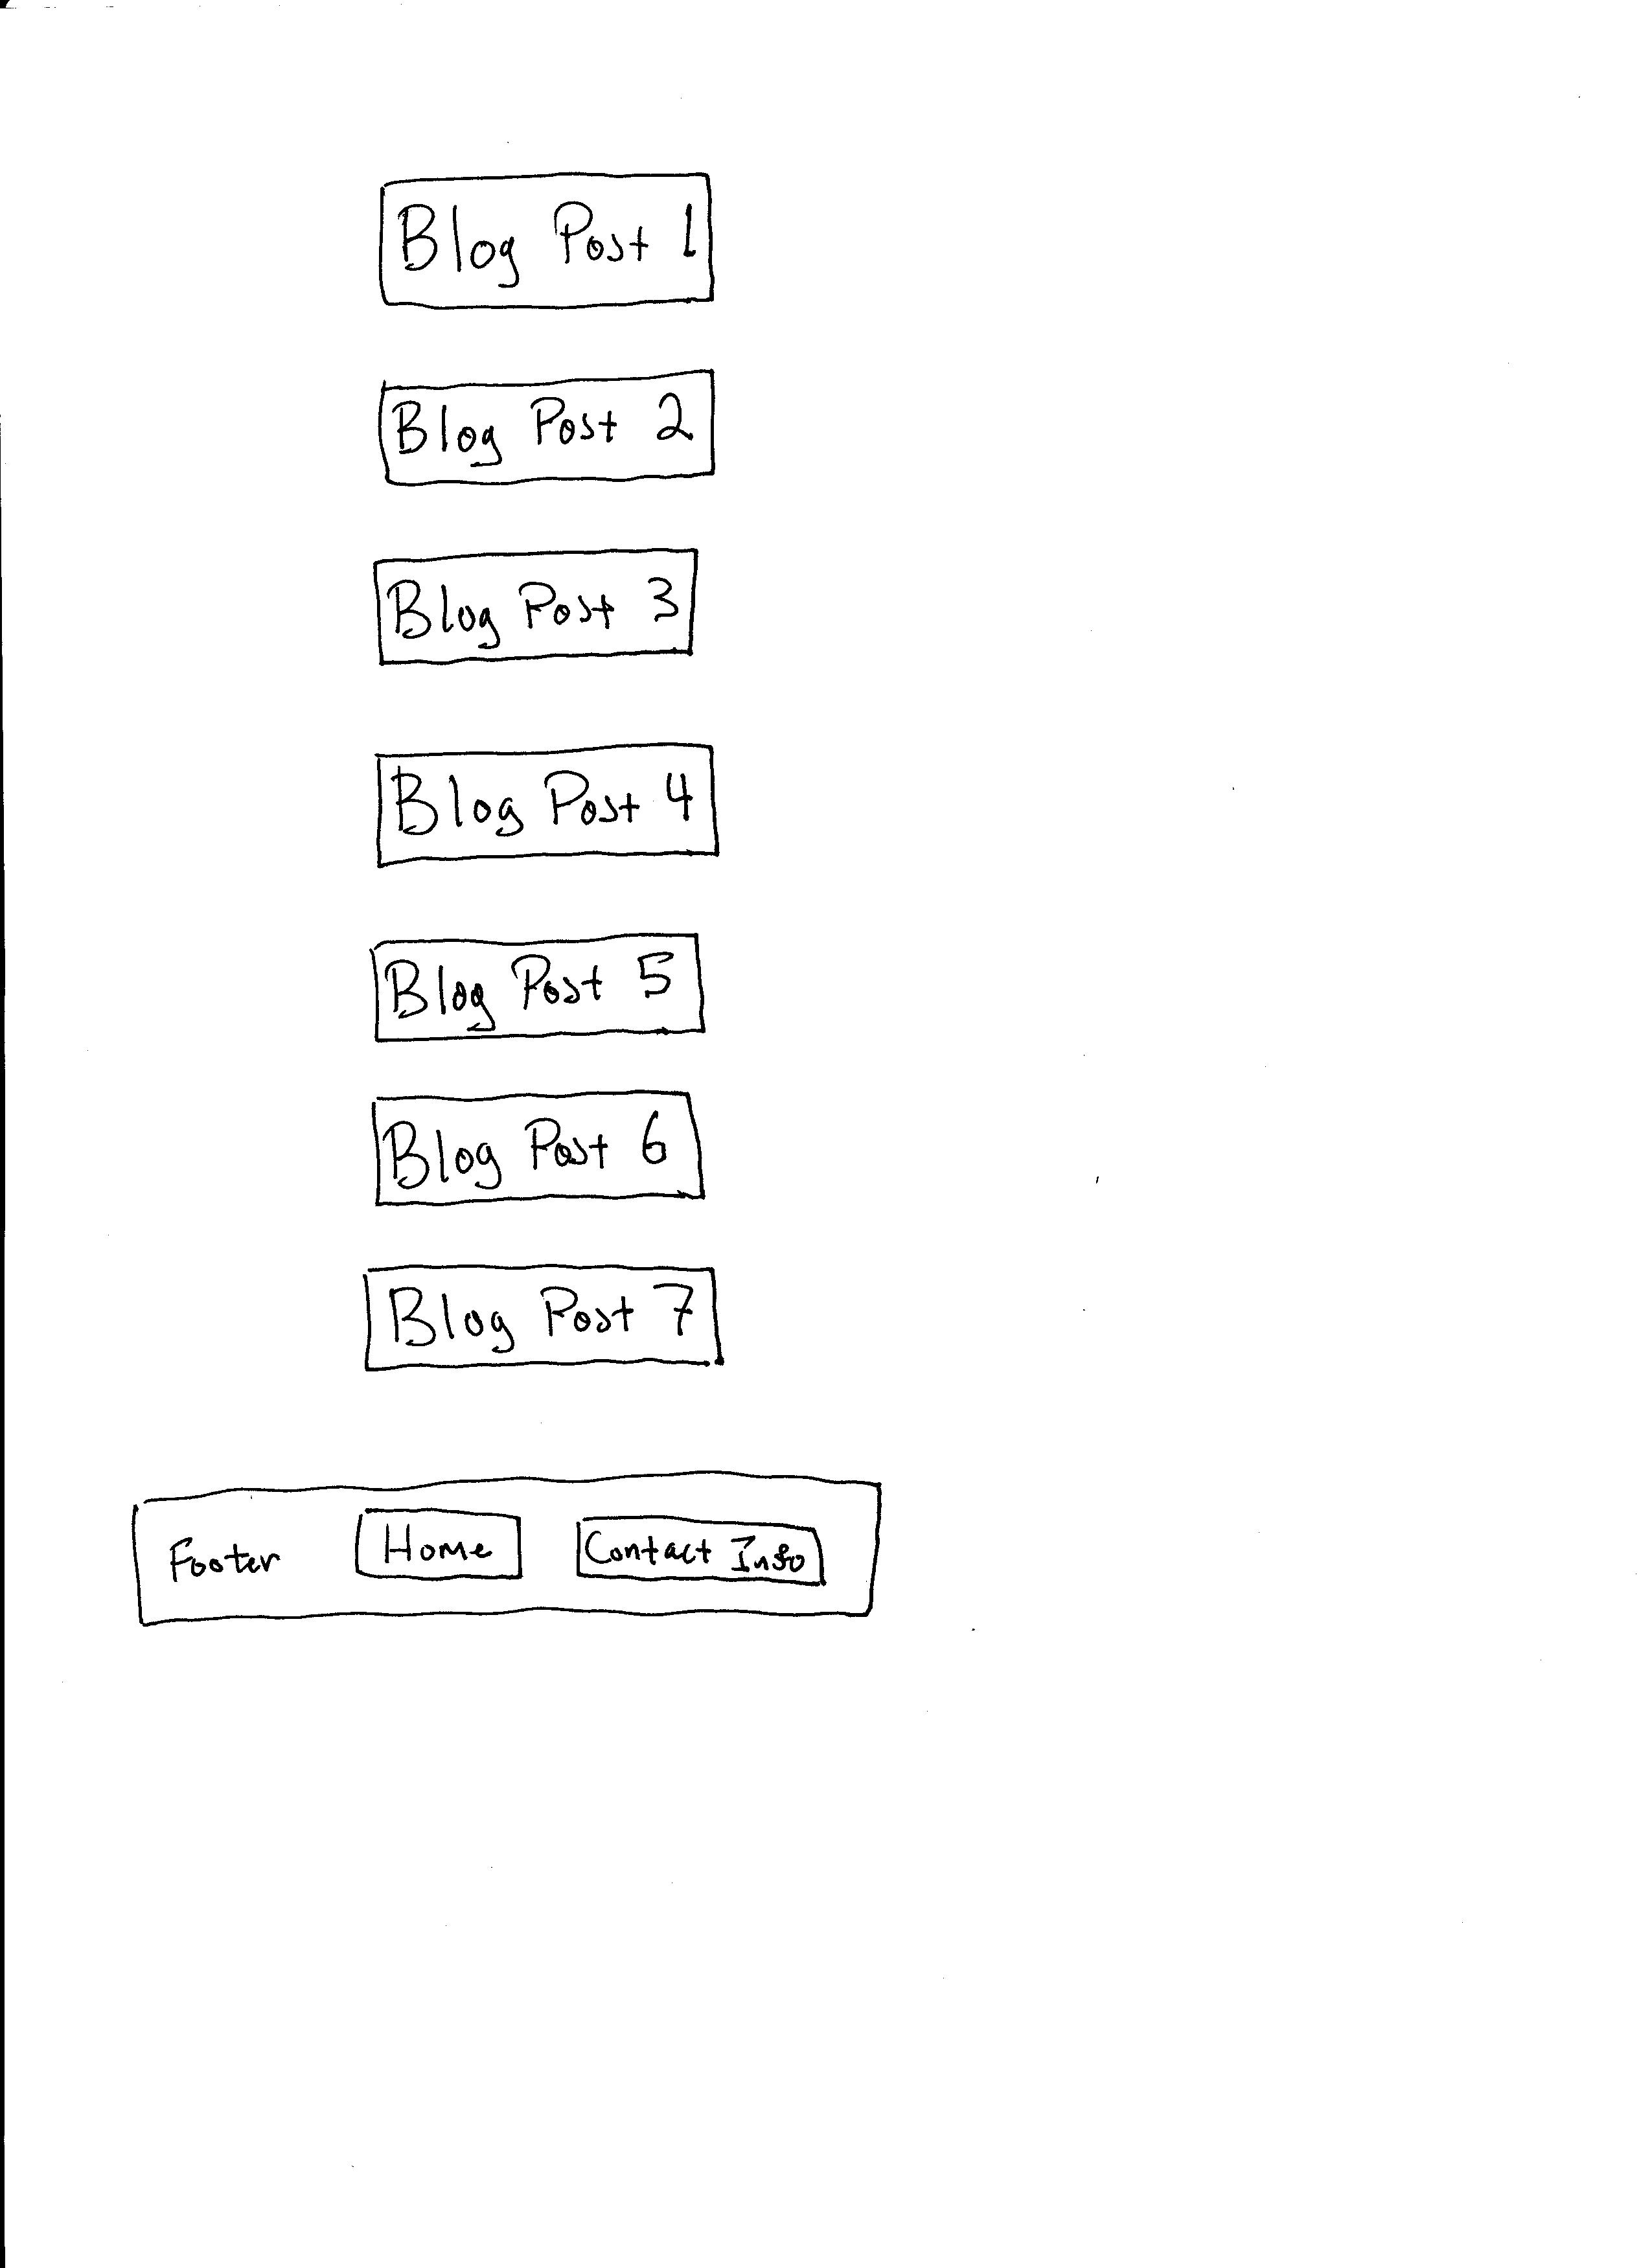 Blog Post 1
Blog Post 2
Blog Post 3
Blog Post 4
Blog Post 5
Blog Post 6
Blog Post 7
Footer Home Contact Info